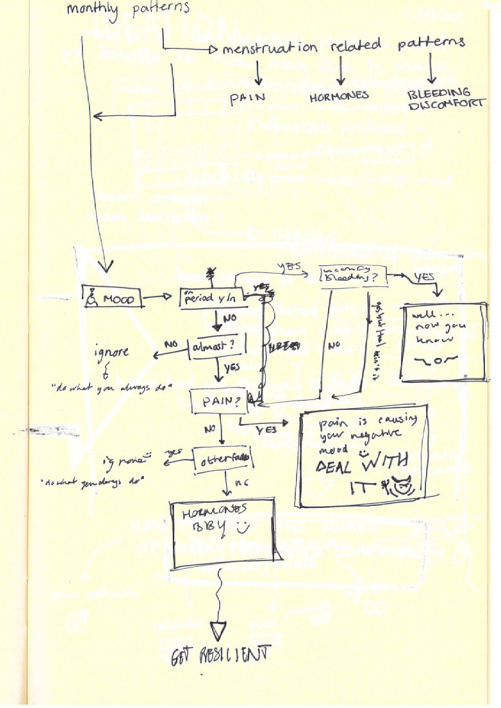 monthly patterns
menstruation related patterns
PAIN
HORMONES
BLEEDING
DISCOMFORT
MOOD
on
period y/n
YES
Bleeding?
YES
well...
now you
know
NO
NO
almost?
ignore
"do what you always do"
YES
NO
PAIN?
NO
YES
pain is causing
your negative
mood
DEAL WITH
IT
yes
ignore
"do what you always do"
no
HORMONES
BBY
GET RESILIENT